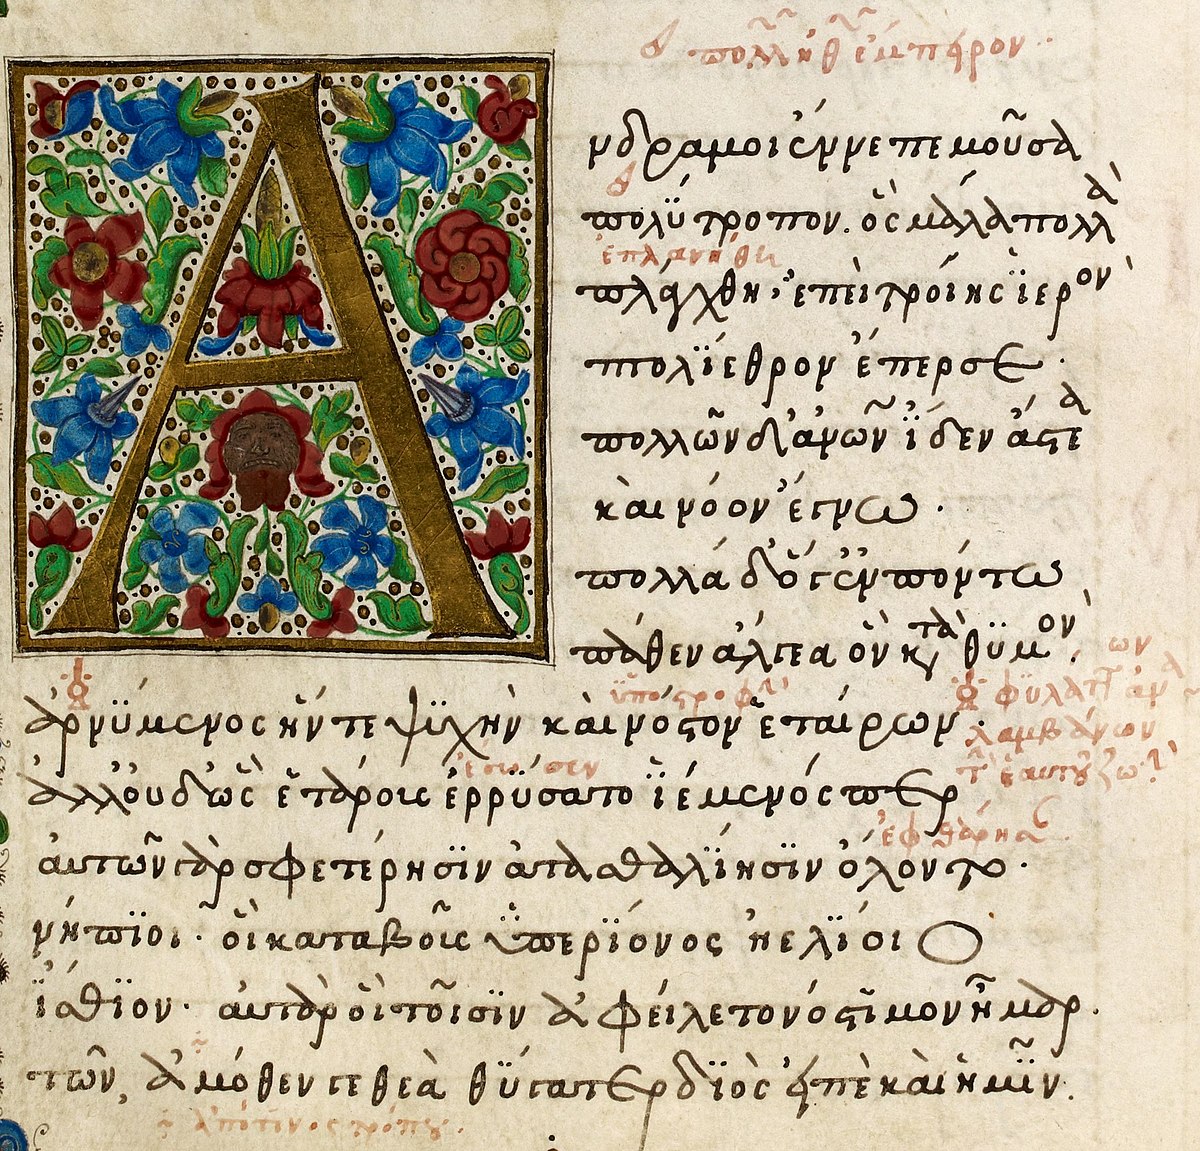 πολλὴν ἐμπειρον
Α
νδρα μοι ἔννεπε μοῦσα
πολύτροπον. ὃς μάλα πολλὰ
ἐπλανήθη
πλάγχθη, ἐπεὶ τροίης ἱερὸν
πτολίεθρον ἔπερσε.
πολλῶν δ' ἀνθρώπων ἴδεν ἄστεα
καὶ νόον ἔγνω.
πολλὰ δ' ὅγ' ἐν πόντω
πάθεν ἄλγεα ὃν κατὰ θυμόν.
ὑποστροφὴν
ἀρνύμενος ἥν τε ψυχὴν καὶ νόστον ἑταίρων.
λαμβάνων
ἔσωσεν
ἀλλ' οὐδ' ὣς ἑτάρους ἐρρύσατο ἱέμενός περ
ἐφθάρησαν
αὐτῶν γὰρ σφετέρησιν ἀτασθαλίησιν ὄλοντο.
νήπιοι. οἳ κατὰ βοῦς ὑπερίονος ἠελίοιο
ἤσθιον. αὐτὰρ ὁ τοῖσιν ἀφείλετο νόστιμον ἦμαρ.
τῶν, ἁμόθεν γε θεὰ θύγατερ διὸς εἰπὲ καὶ ἡμῖν.
ἀπό τινος τρόπου.